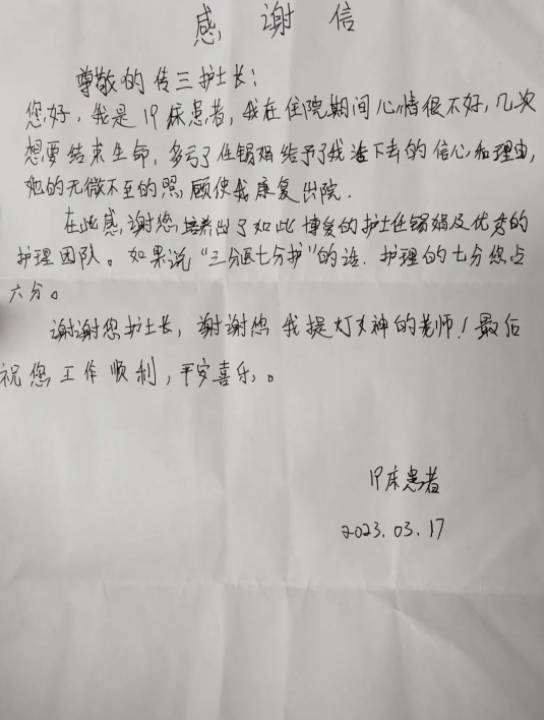 感谢信
尊敬的传三护士长：
您好，我是19床患者，我在住院期间心情很不好，几次
想要结束生命，多亏了任锡娟给予了我活下去的信心和理由，
她的无微不至的照顾使我康复出院.
在此感谢您培养出了如此博爱的护士任锡娟及优秀的
护理团队。如果说“三分医七分护”的话.护理的七分您占
六分。
谢谢您护士长，谢谢您我提灯女神的老师！最后
祝您工作顺利，平安喜乐。
19床患者
2023.03.17